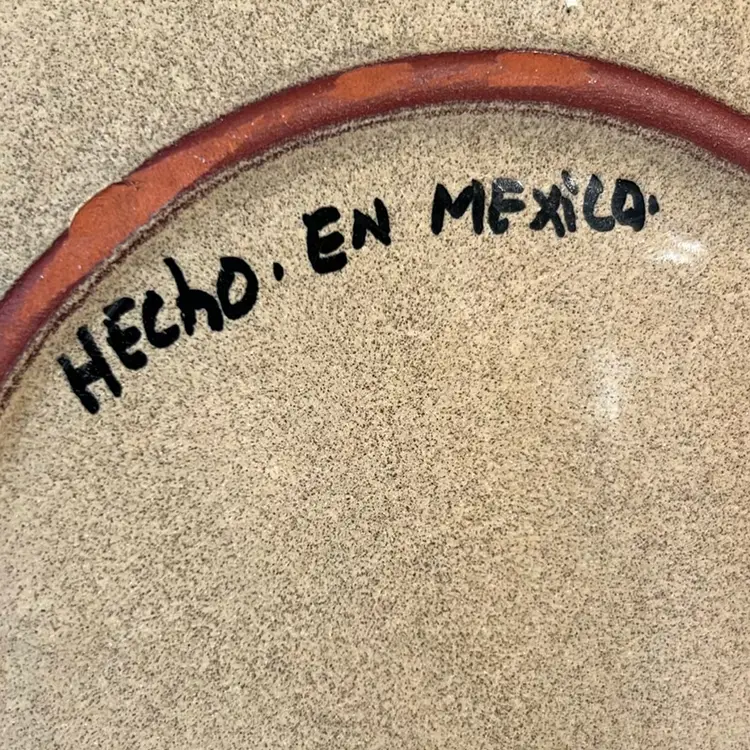 HEChO. EN MEXiCO.